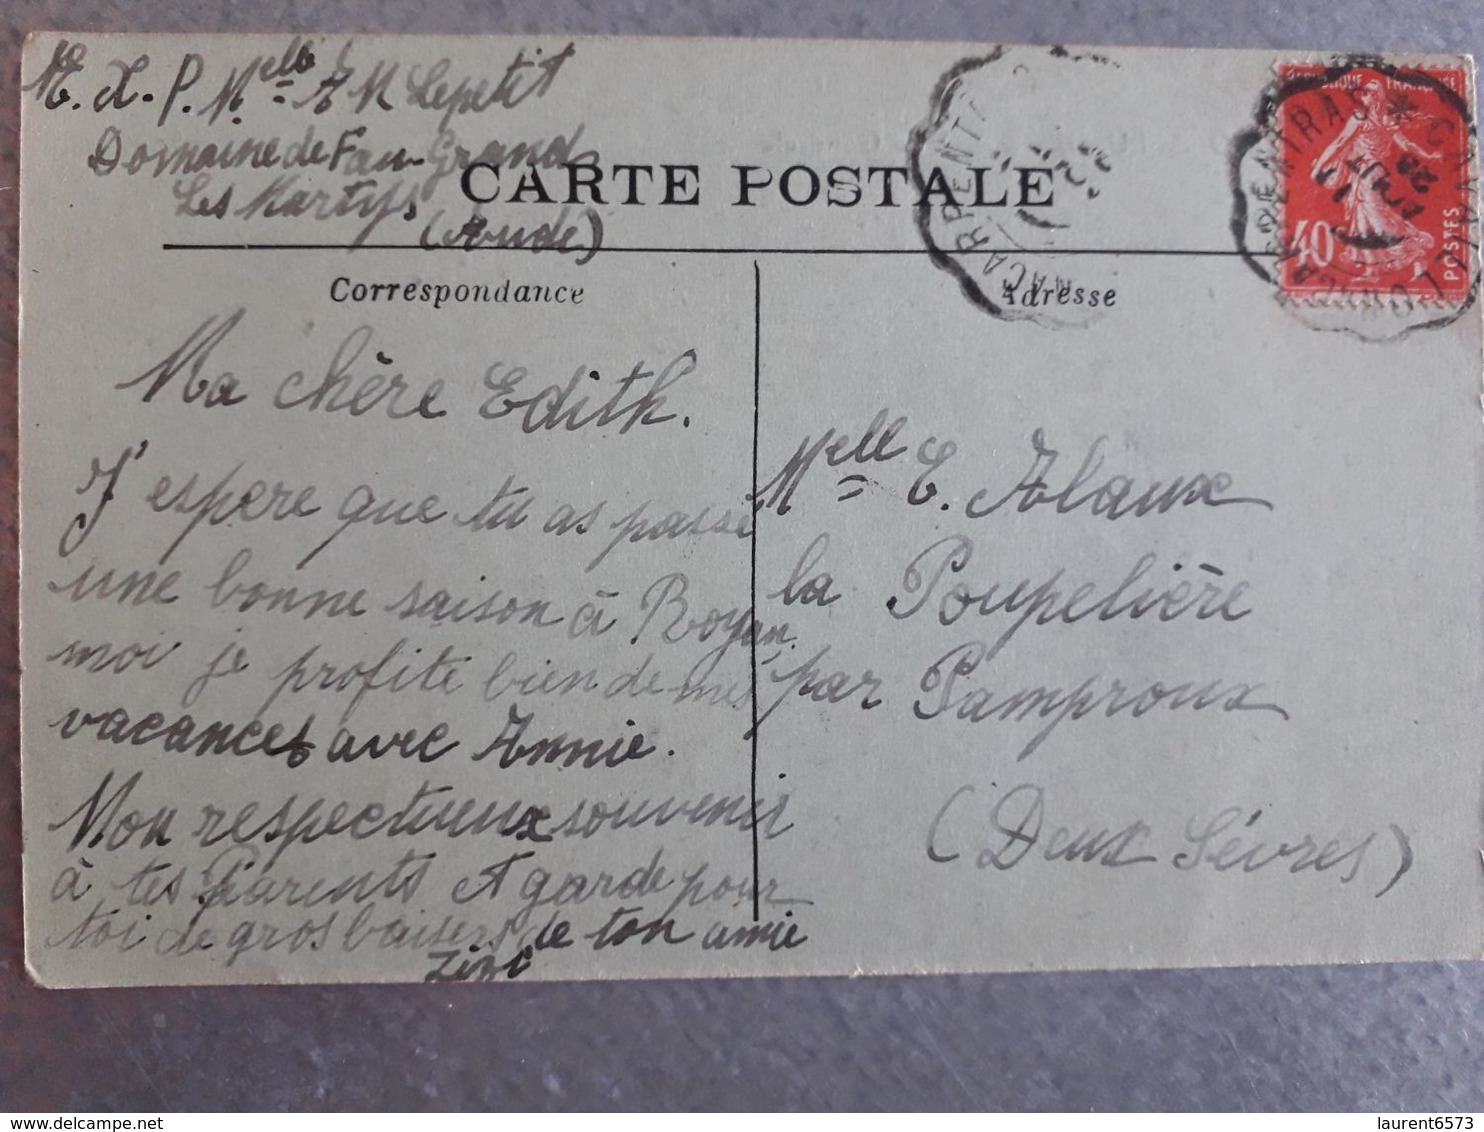 M. L. P. Melle A M Lepetit
Domaine de Fau-Grand
Les Martys
(Aude)
CARTE POSTALE
Correspondance
Adresse
RÉPUBLIQUE FRANÇAISE
40
POSTES
CARPENTRAS
Ma chère Edith.
J'espere que tu as passé
une bonne saison à Royan,
moi je profite bien de mes
vacances avec Annie.
Mon respectueux souvenir
à tes Parents et garde pour
toi de gros baisers de ton amie
Zizi
Melle E. Alaux
la Poupelière
par Pamproux
(Deux Sévres)
laurent6573